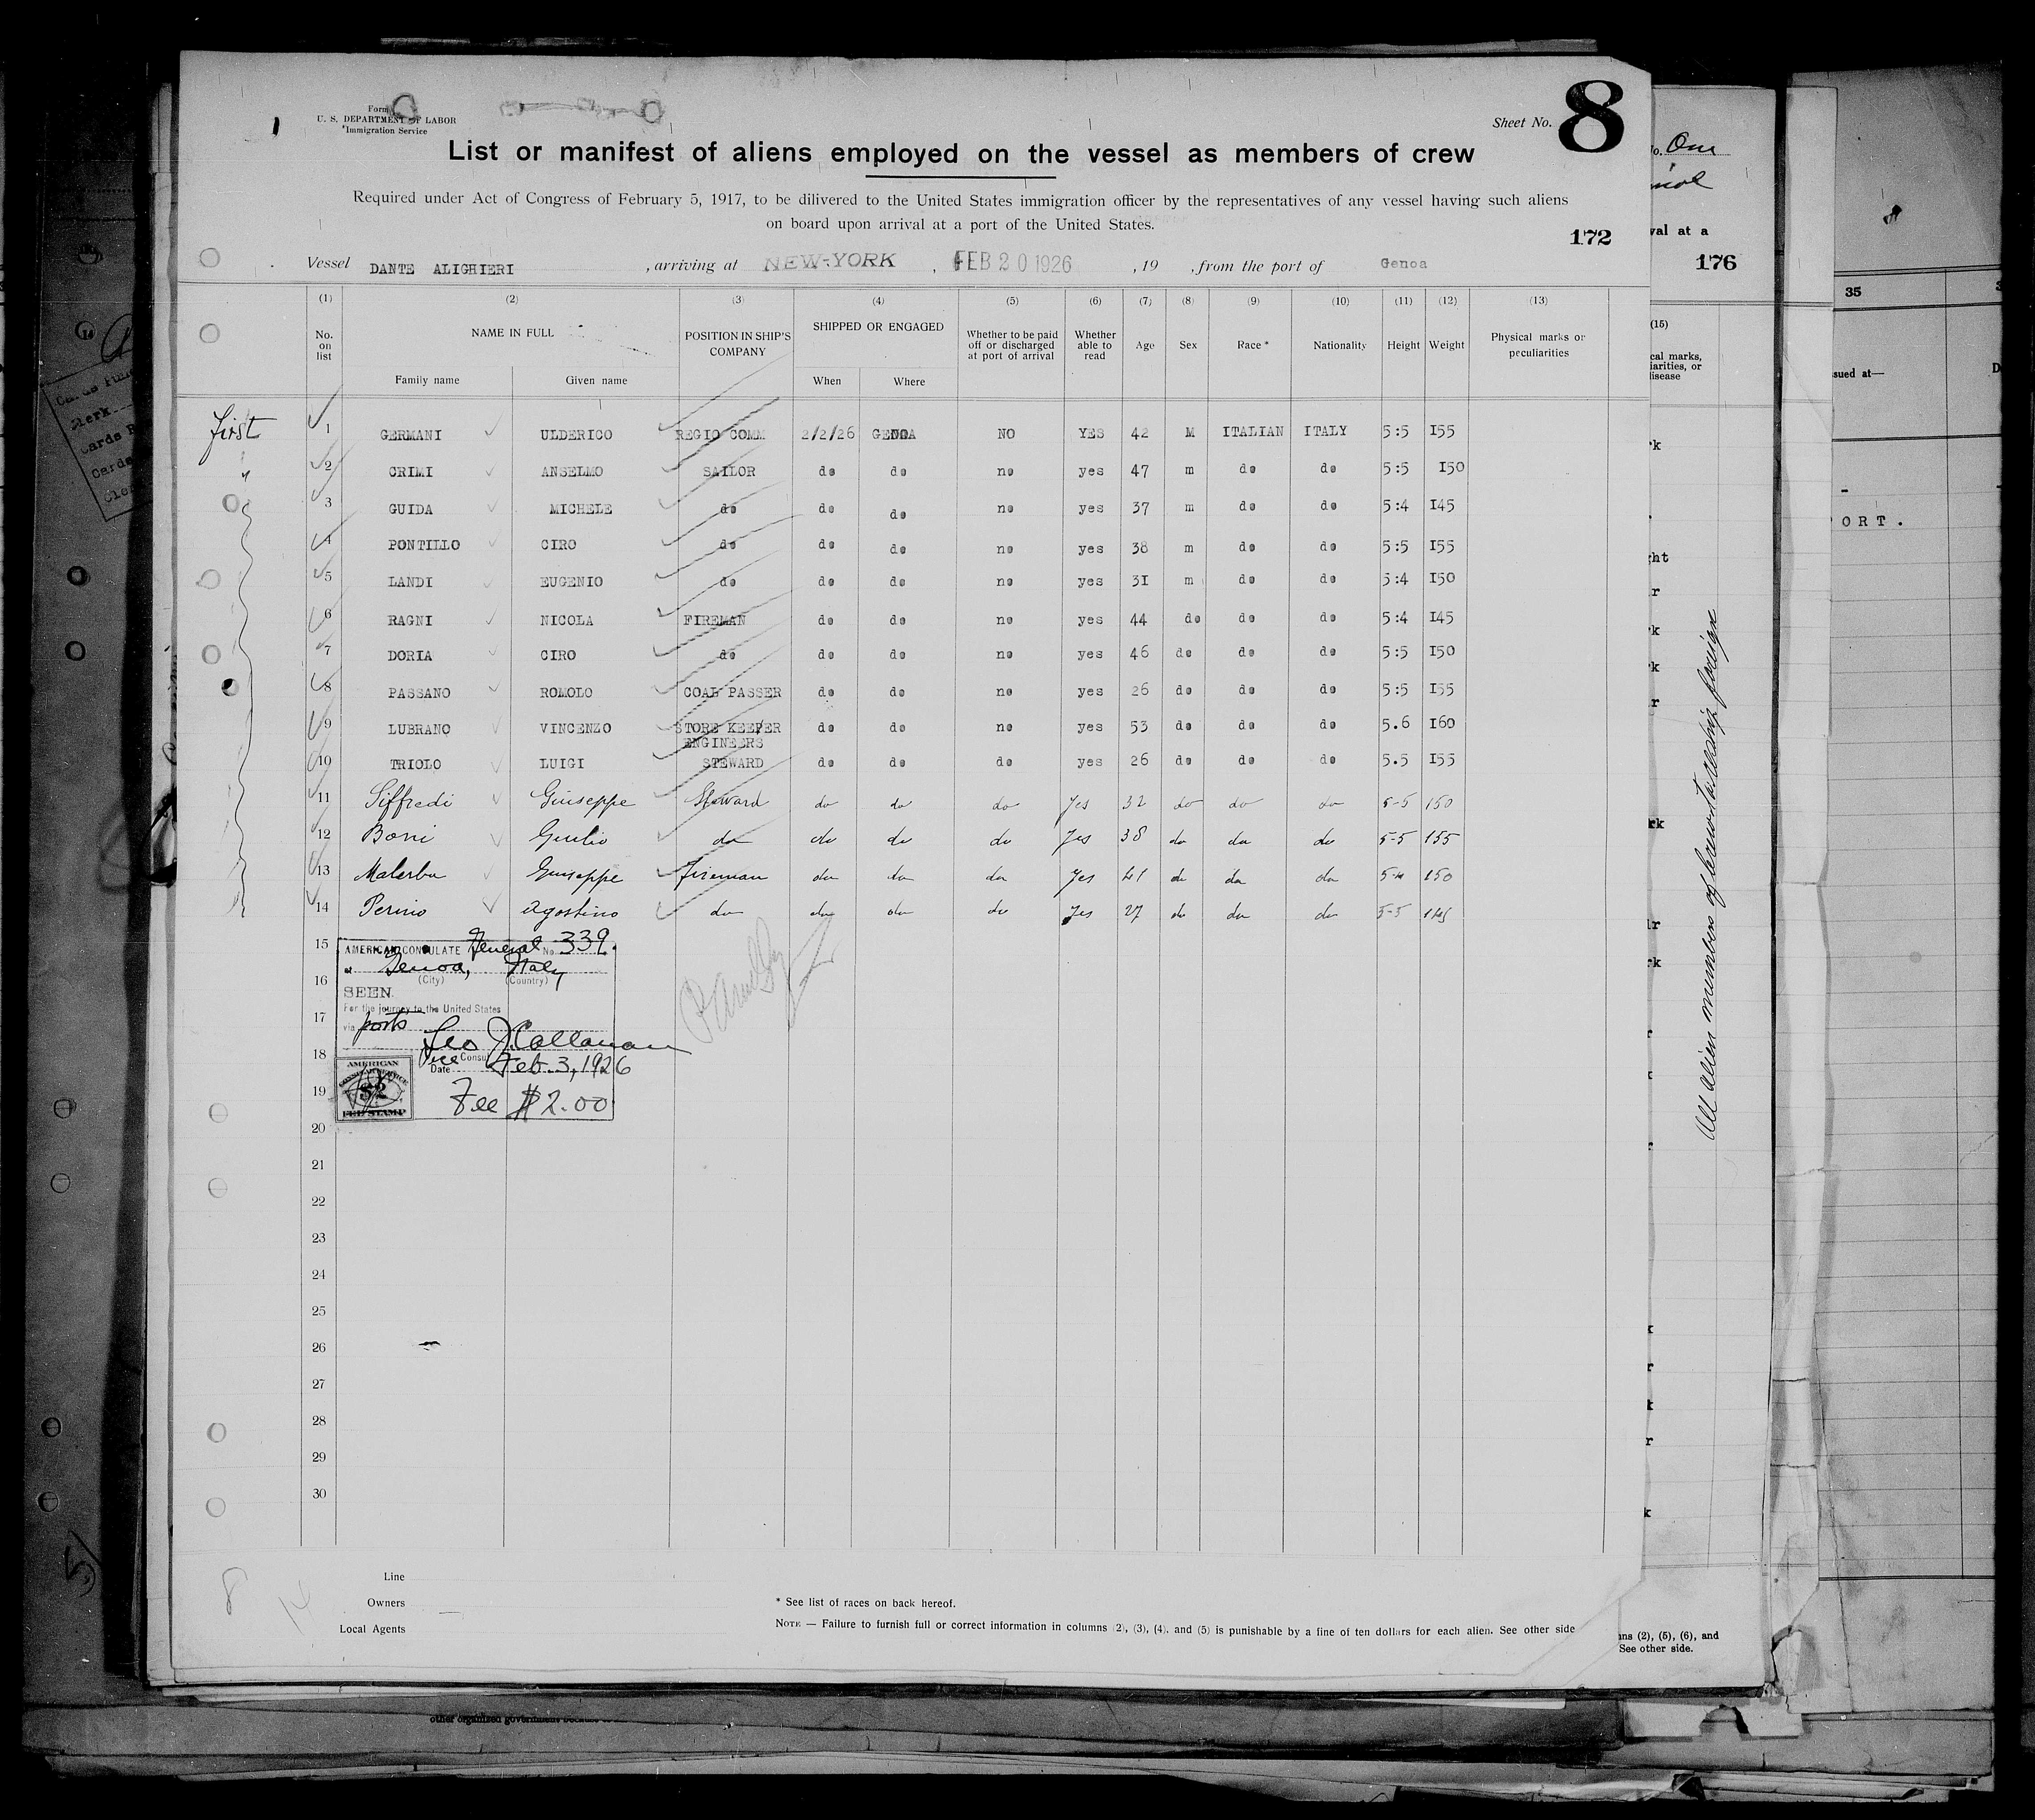 Form
U. S. DEPARTMENT OF LABOR
Immigration Service
Sheet No. 8
List or manifest of aliens employed on the vessel as members of crew
Required under Act of Congress of February 5, 1917, to be dilivered to the United States immigration officer by the representatives of any vessel having such aliens
on board upon arrival at a port of the United States.
172
Vessel DANTE ALIGHIERI , arriving at NEW-YORK , FEB 20 1926 , 19 , from the port of Genoa
(1) (2) (3) (4) (5) (6) (7) (8) (9) (10) (11) (12) (13)
No. on list NAME IN FULL POSITION IN SHIP'S COMPANY SHIPPED OR ENGAGED Whether to be paid off or discharged at port of arrival Whether able to read Age Sex Race * Nationality Height Weight Physical marks or peculiarities
Family name Given name When Where
first 1 GERMANI ULDERICO REGIO COMM 2/2/26 GENOA NO YES 42 M ITALIAN ITALY 5:5 155
" 2 CRIMI ANSELMO SAILOR do do no yes 47 m do do 5:5 150
3 GUIDA MICHELE do do do no yes 37 m do do 5:4 145
4 PONTILLO CIRO do do do no yes 38 m do do 5:5 155
5 LANDI EUGENIO do do do no yes 31 m do do 5:4 150
6 RAGNI NICOLA FIREMAN do do no yes 44 do do do 5:4 145
7 DORIA CIRO do do do no yes 46 do do do 5:5 150
8 PASSANO ROMOLO COAL PASSER do do no yes 26 do do do 5:5 155
9 LUBRANO VINCENZO STORE KEEPER ENGINEERS do do no yes 53 do do do 5.6 160
10 TRIOLO LUIGI STEWARD do do do yes 26 do do do 5.5 155
11 Siffredi Giuseppe Steward do do do Yes 32 do do do 5-5 150
12 Boni Giulio do do do do Yes 38 do do do 5-5 155
13 Malerba Giuseppe Fireman do do do Yes 41 do do do 5-4 150
14 Perino Agostino do do do do Yes 27 do do do 5-5 145
15
16
17
18
19
20
21
22
23
24
25
26
27
28
29
30
AMERICAN CONSULATE General No 339
at Genoa, Italy
(City) (Country)
SEEN
For the journey to the United States
via ports
Leo J. Callanan
Vice Consul
Date Feb. 3, 1926
AMERICAN
CONSULAR SERVICE
$2
FEE STAMP
Fee $2.00
8 14
Line
Owners
Local Agents
* See list of races on back hereof.
NOTE — Failure to furnish full or correct information in columns (2), (3), (4), and (5) is punishable by a fine of ten dollars for each alien. See other side
No. One
val at a
176
(15)
cal marks,
iarities, or
disease
All alien members of crew
ns (2), (5), (6), and
See other side.
35
sued at—
ORT.
other organized government